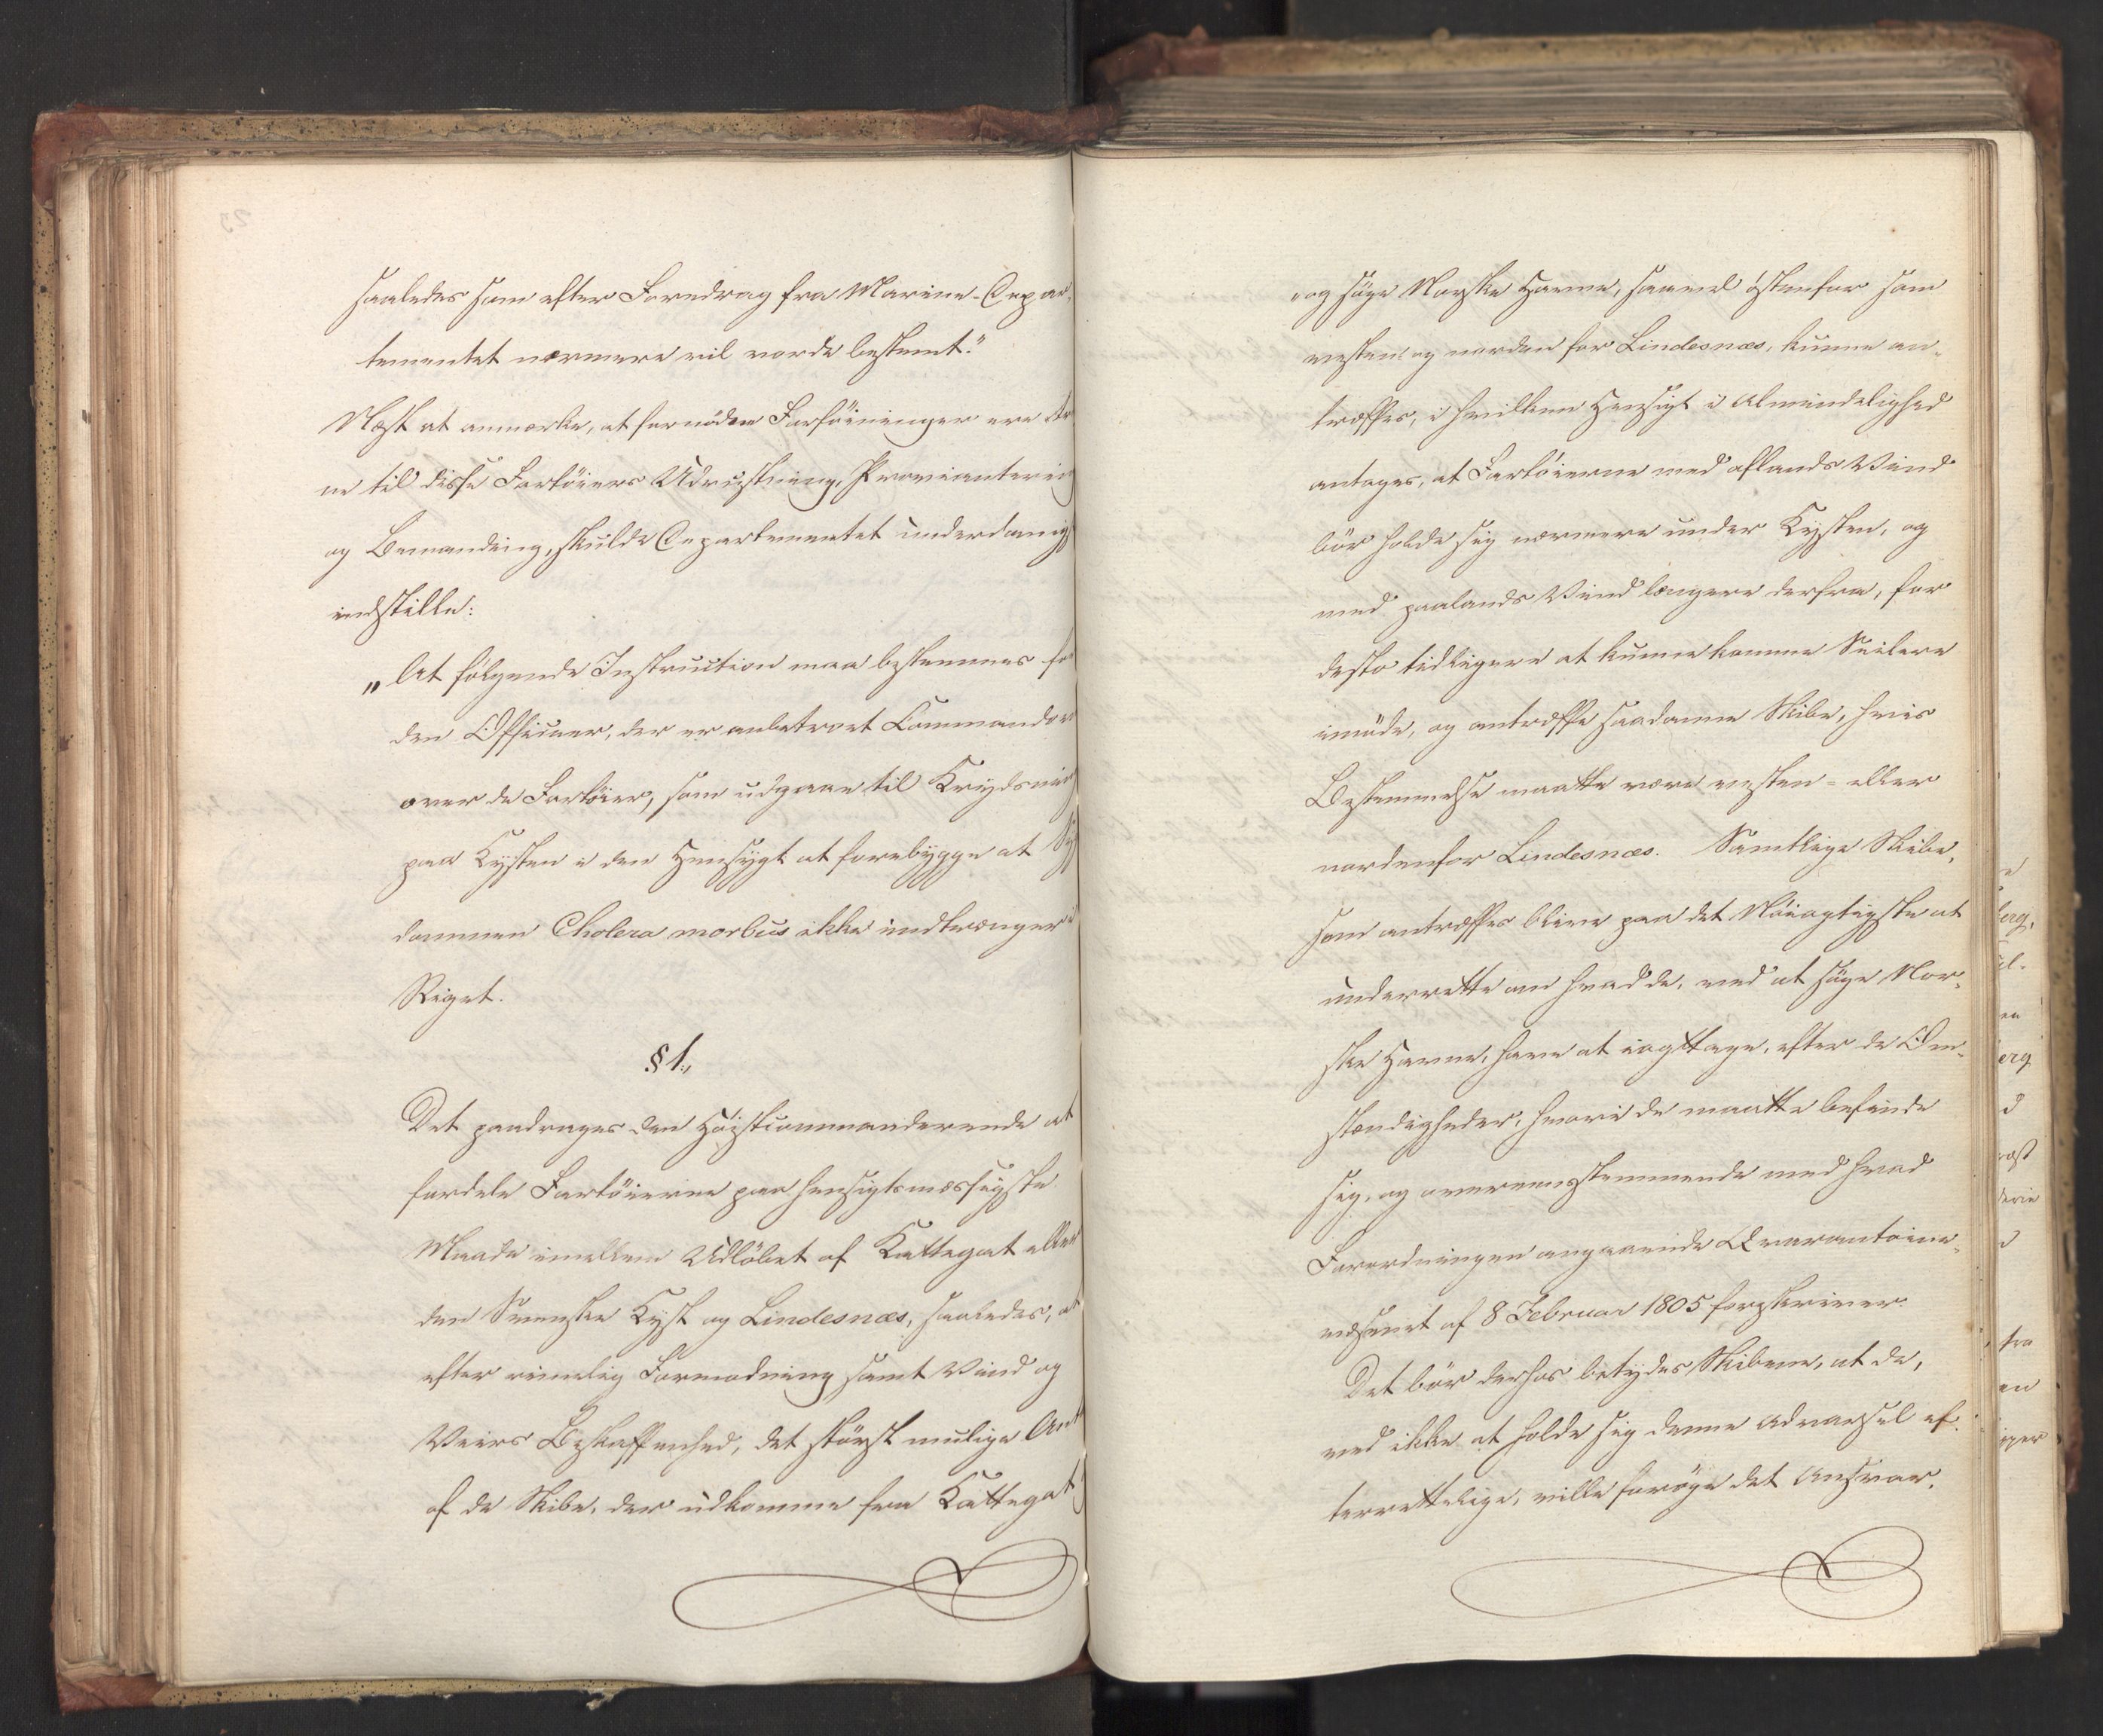 saaledes som efter Foredrag fra Marine-Depar-
tementet nærmere vil vorde bestemt."
Næst at anmærke, at fornödne Forföininger ere
ne til disse Fartöiers Udrustning, Provianterin
og Bemanding, skulde Departementet underdanigst
indstille:
„At fölgende Instruction maa bestemmes for
den Officeer, der er anbetroet Commandoen
over de Fartöier, som udgaae til Krydsning
paa Kysten i den Hensigt at forebygge at Syg-
dommen Cholera morbus ikke indtrænger i
Riget.
§ 1.
Det paadrages den Höistcommanderende at
fordele Fartöierne paa hensigtsmæssigste
Maade imellem Udlöbet af Kattegat eller
den Svenske Kyst og Lindesnæs, saaledes, at
efter rimelig Formodning samt Vind og
Veirs Beskaffenhed, det störst mulige Antal
af de Skibe, der udkomme fra Kattegat
og söge Norske Havne, saavel östenfor som
vesten og norden for Lindesnæs, kunne an-
træffes, i hvilken Hensigt i Almindelighed
antages, at Fartöierne med aflands Vind
bör holde sig nærmere under Kysten, og
med paalands Vind længere derfra, for
desto tidligere at kunne komme Seilere
imöde, og antræffe saadanne Skibe, hvis
Bestemmelse maatte være vesten- eller
nordenfor Lindesnæs. Samtlige Skibe,
som antræffes blive paa det Nöiagtigste at
underrette om hvad de, ved at söge Nor-
ske Havne, have at iagttage, efter de Om-
stændigheder, hvori de maatte befinde
sig, og overeensstemmende med hvad
Forordningen angaaende Qvarantaine-
væsenet af 8 Februar 1805 forskriver.
Det bör derhos betydes Skibene, at de,
ved ikke at holde sig denne Advarsel ef-
terrettelige, ville foröge det Ansvar,